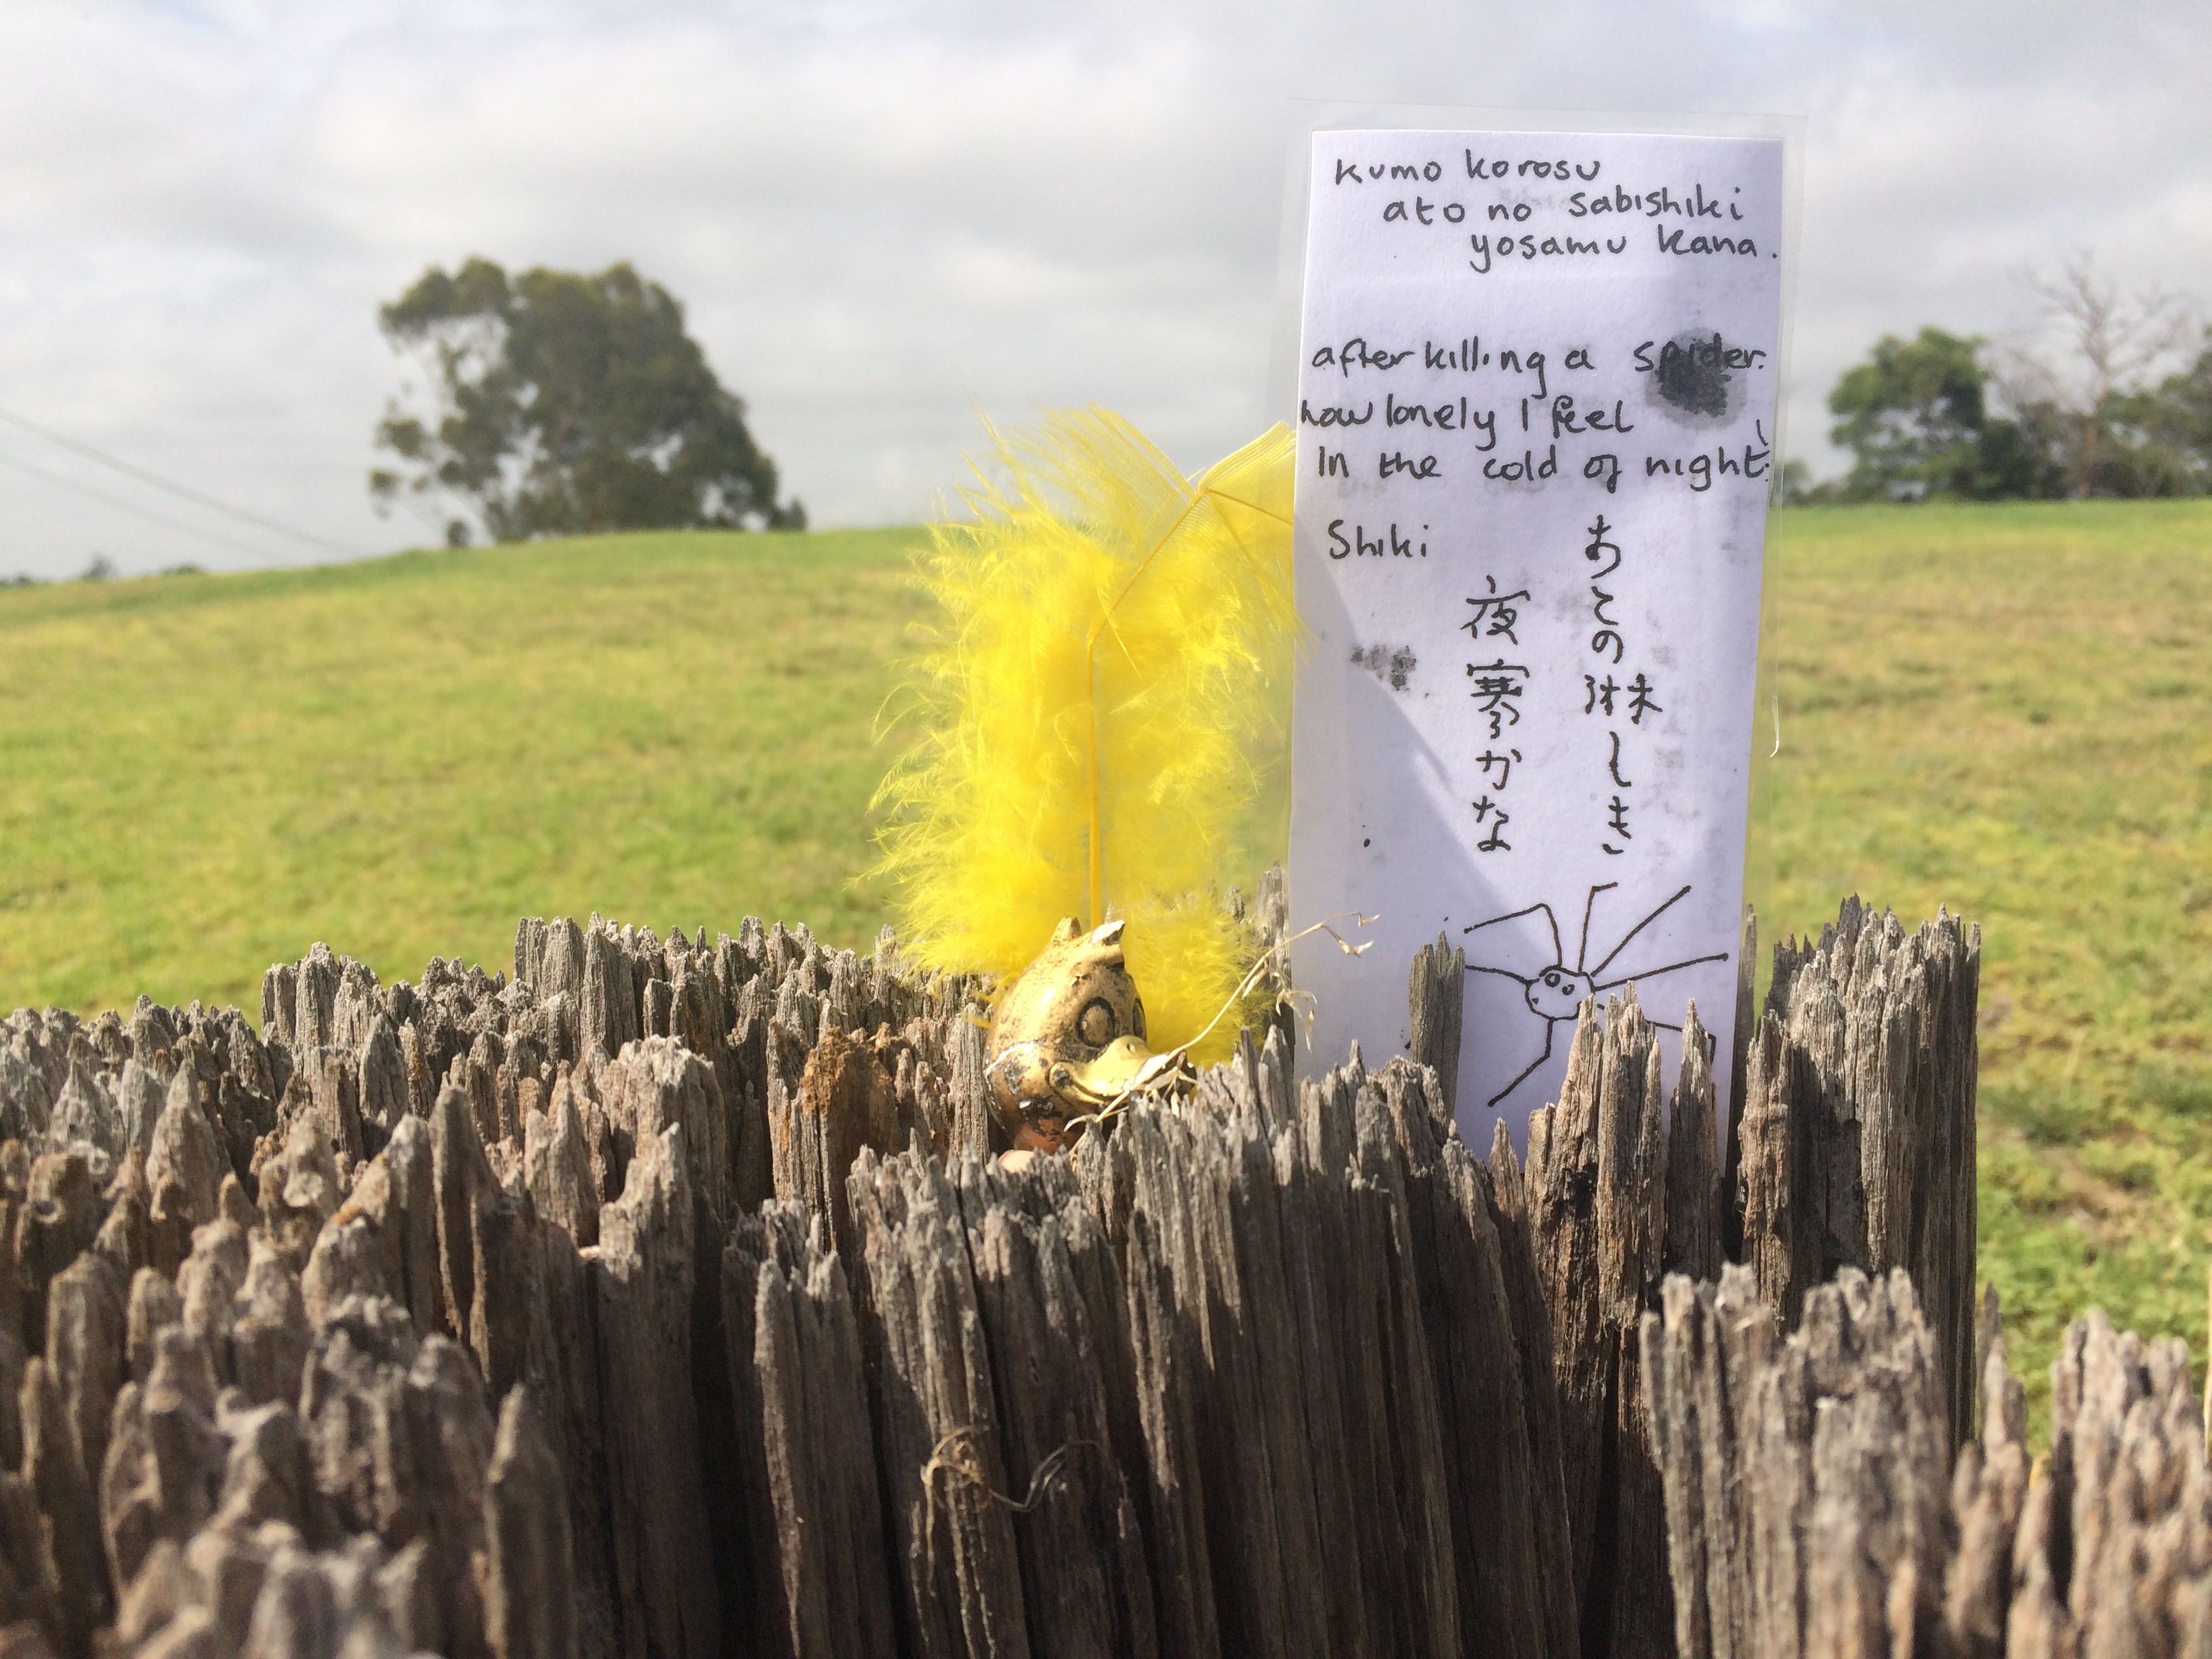 kumo korosu
ato no sabishiki
yosamu kana.
after killing a spider.
how lonely I feel
in the cold of night!
Shiki
あとの淋しき
夜寒かな